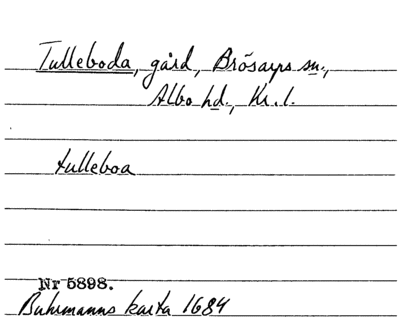 Tulleboda, gård, Brösarps sn.,
Albo hd., Kr. l.
tulleboa
Nr 5898.
Buhrmanns karta 1684